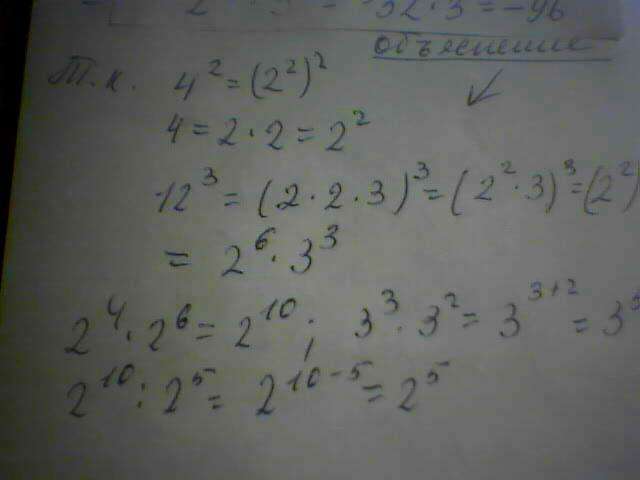 32·3=-96
объяснение
Т.к. 4²=(2²)²
4=2·2=2²
12³=(2·2·3)³=(2²·3)³=(2²)
=2⁶·3³
2⁴·2⁶=2¹⁰; 3³·3²=3³⁺²=3⁵
2¹⁰:2⁵=2¹⁰⁻⁵=2⁵